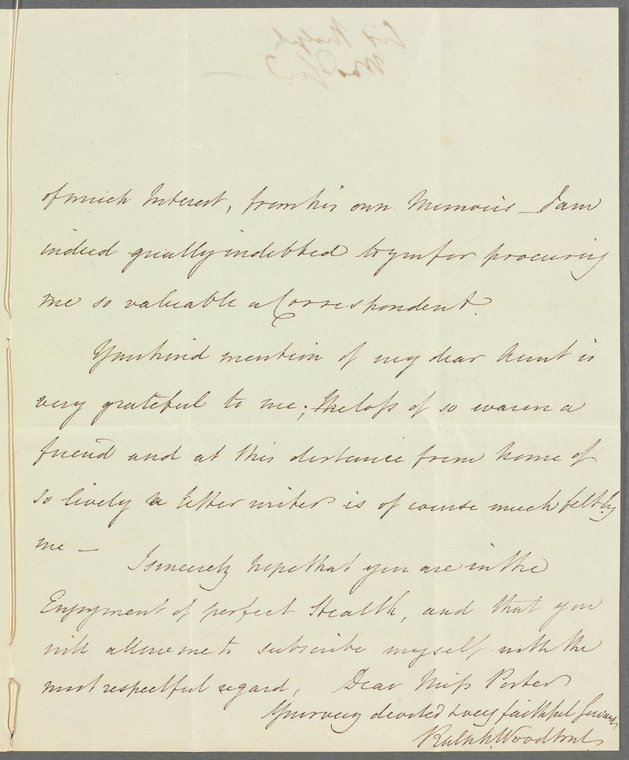 of much Interest, from his own Memoirs – I am
indeed greatly indebted to you for procuring
me so valuable a Correspondent.
Your kind mention of my dear Aunt is
very grateful to me; the loss of so warm a
friend and at this distance from home of
so lively a letter writer is of course much felt by
me –
I sincerely hope that you are in the
Enjoyment of perfect Health, and that you
will allow me to subscribe myself with the
most respectful regard, Dear Miss Porter
Your very devoted & very faithful Servant
Ralph Woodford